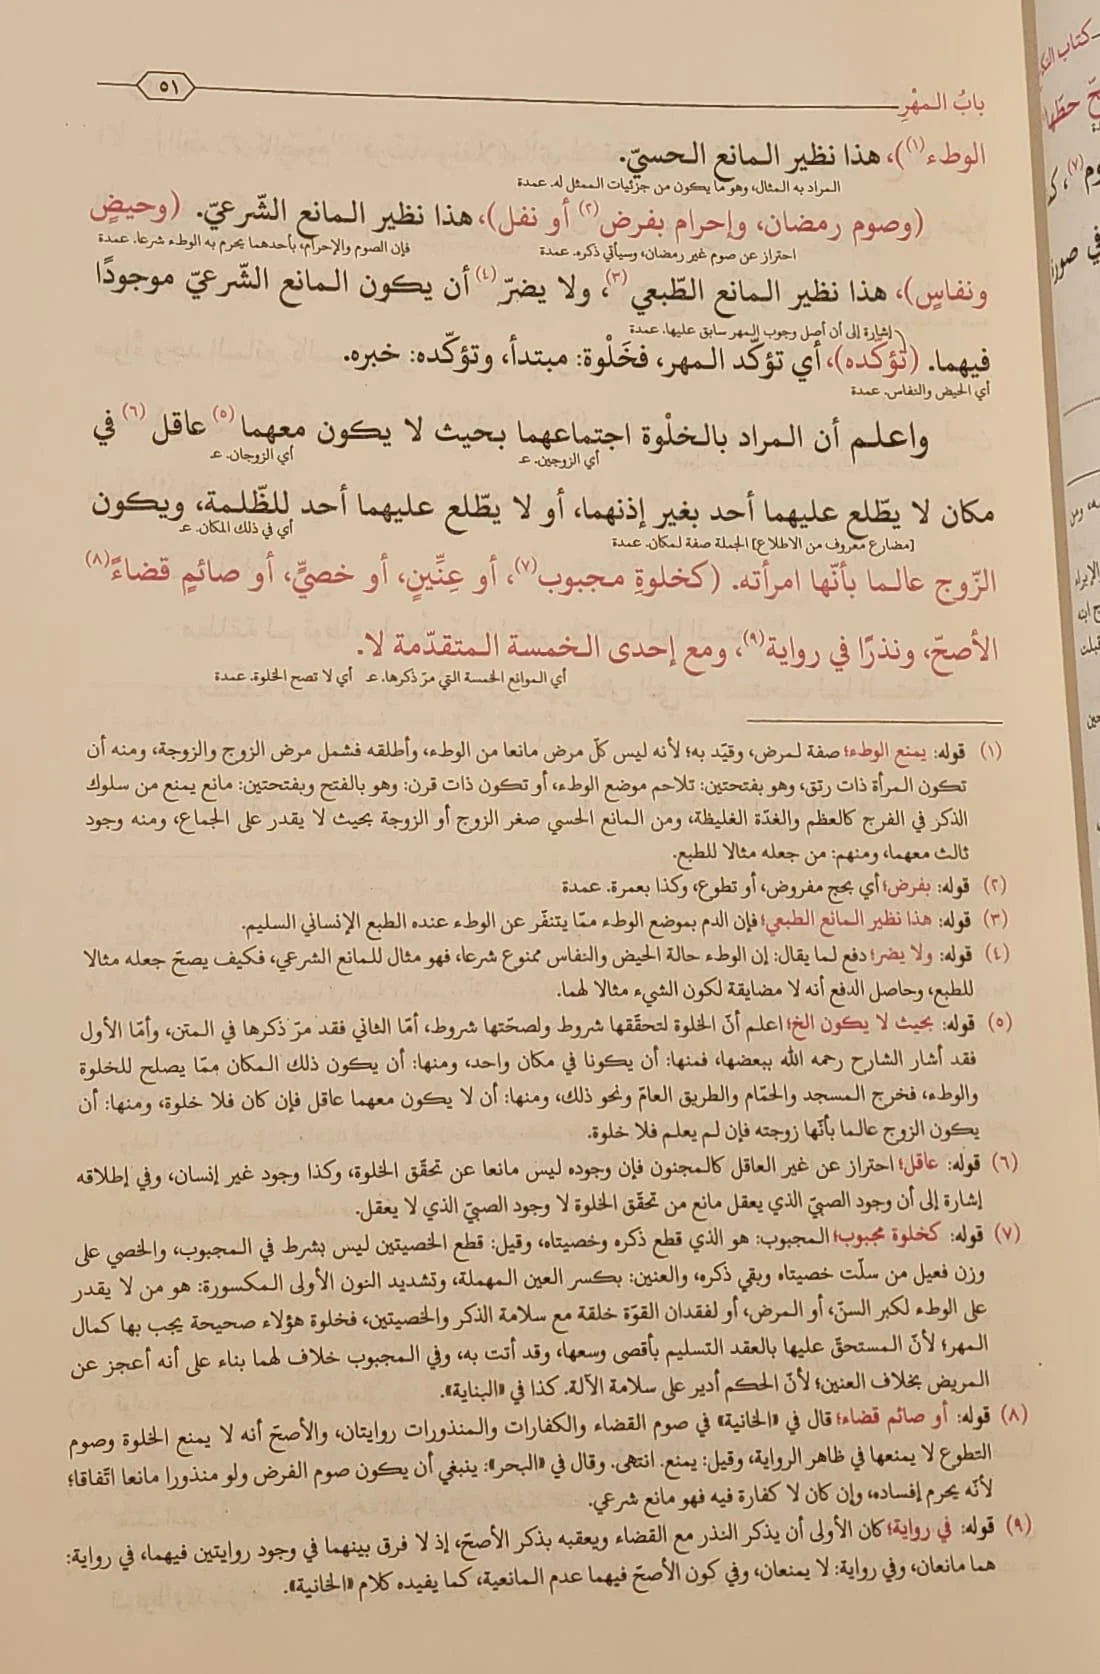 بابُ الـمهْرِ
٥١
الوطء(١))، هذا نظير الـمانع الـحسيّ.
المراد به المثال، وهو ما يكون من جزئيات الممثل له. عمدة
(وصوم رمضان، وإحرام بفرض(٢) أو نفل)، هذا نظير الـمانع الشّرعيّ. (وحيضٍ
احتراز عن صوم غير رمضان، وسيأتي ذكره. عمدة فإن الصوم والإحرام، بأحدهما يحرم به الوطء شرعا. عمدة
ونفاسٍ)، هذا نظير الـمانع الطّبعي(٣)، ولا يضرّ(٤) أن يكون الـمانع الشّرعيّ موجودًا
إشارة إلى أن أصل وجوب المهر سابق عليها. عمدة
فيهما. (تؤكّده)، أي تؤكّد الـمهر، فخَلْوة: مبتدأ، وتؤكّده: خبره.
أي الحيض والنفاس. عمدة
واعلـم أن الـمراد بالـخلْوة اجتماعهما بـحيث لا يكون معهما(٥) عاقل(٦) في
أي الزوجين. عـ أي الزوجان. عـ
مكان لا يطّلع عليهما أحد بغير إذنهما، أو لا يطّلع عليهما أحد للظّلـمة، ويكون
[مضارع معروف من الاطلاع] الجملة صفة لمكان. عمدة أي في ذلك المكان. عـ
الزّوج عالـما بأنّها امرأته. (كخلوةِ مـجبوب(٧)، أو عِنِّينٍ، أو خصيٍّ، أو صائمٍ قضاءً(٨)
الأصحّ، ونذرًا في رواية(٩)، ومع إحدى الـخمسة الـمتقدّمة لا.
أي الموانع الخمسة التي مرّ ذكرها. عـ أي لا تصح الخلوة. عمدة
(١) قوله: يمنع الوطء؛ صفة لـمرض، وقيّد به؛ لأنه ليس كلّ مرض مانعا من الوطء، وأطلقه فشمل مرض الزوج والزوجة، ومنه أن
تكون المرأة ذات رتق، وهو بفتحتين: تلاحم موضع الوطء، أو تكون ذات قرن: وهو بالفتح وبفتحتين: مانع يمنع من سلوك
الذكر في الفرج كالعظم والغدّة الغليظة، ومن المانع الحسي صغر الزوج أو الزوجة بحيث لا يقدر على الجماع، ومنه وجود
ثالث معهما، ومنهم: من جعله مثالا للطبع.
(٢) قوله: بفرض؛ أي بحج مفروض، أو تطوع، وكذا بعمرة. عمدة
(٣) قوله: هذا نظير الـمانع الطبعي؛ فإن الدم بموضع الوطء ممّا يتنفّر عن الوطء عنده الطبع الإنساني السليم.
(٤) قوله: ولا يضر؛ دفع لما يقال: إن الوطء حالة الحيض والنفاس ممنوع شرعا، فهو مثال للمانع الشرعي، فكيف يصحّ جعله مثالا
للطبع، وحاصل الدفع أنه لا مضايقة لكون الشيء مثالا لهما.
(٥) قوله: بحيث لا يكون الخ؛ اعلم أنّ الخلوة لتحقّقها شروط ولصحّتها شروط، أمّا الثاني فقد مرّ ذكرها في الـمتن، وأمّا الأول
فقد أشار الشارح رحمه الله ببعضها، فمنها: أن يكونا في مكان واحد، ومنها: أن يكون ذلك الـمكان ممّا يصلح للخلوة
والوطء، فخرج المسجد والحمّام والطريق العامّ ونحو ذلك، ومنها: أن لا يكون معهما عاقل فإن كان فلا خلوة، ومنها: أن
يكون الزوج عالـما بأنّها زوجته فإن لم يعلم فلا خلوة.
(٦) قوله: عاقل؛ احتراز عن غير العاقل كالمجنون فإن وجوده ليس مانعا عن تحقّق الخلوة، وكذا وجود غير إنسان، وفي إطلاقه
إشارة إلى أن وجود الصبيّ الذي يعقل مانع من تحقّق الخلوة لا وجود الصبيّ الذي لا يعقل.
(٧) قوله: كخلوة مجبوب؛ الـمجبوب: هو الذي قطع ذكره وخصيتاه، وقيل: قطع الخصيتين ليس بشرط في الـمجبوب، والخصي على
وزن فعيل من سلّت خصيتاه وبقي ذكره، والعنين: بكسر العين المهملة، وتشديد النون الأولى المكسورة: هو من لا يقدر
على الوطء لكبر السنّ، أو الـمرض، أو لفقدان القوّة خلقة مع سلامة الذكر والخصيتين، فخلوة هؤلاء صحيحة يجب بها كمال
المهر؛ لأنّ المستحقّ عليها بالعقد التسليم بأقصى وسعها، وقد أتت به، وفي المجبوب خلاف لهما بناء على أنه أعجز عن
المريض بخلاف العنين؛ لأنّ الحكم أدير على سلامة الآلة. كذا في «البناية».
(٨) قوله: أو صائم قضاء؛ قال في «الخانية» في صوم القضاء والكفارات والمنذورات روايتان، والأصحّ أنه لا يمنع الخلوة وصوم
التطوع لا يمنعها في ظاهر الرواية، وقيل: يمنع. انتهى. وقال في «البحر»: ينبغي أن يكون صوم الفرض ولو منذورا مانعا اتّفاقا؛
لأنّه يحرم إفساده، وإن كان لا كفارة فيه فهو مانع شرعي.
(٩) قوله: في رواية؛ كان الأولى أن يذكر النذر مع القضاء ويعقبه بذكر الأصحّ، إذ لا فرق بينهما في وجود روايتين فيهما، في رواية:
هما مانعان، وفي رواية: لا يمنعان، وفي كون الأصحّ فيهما عدم المانعية، كما يفيده كلام «الخانية».